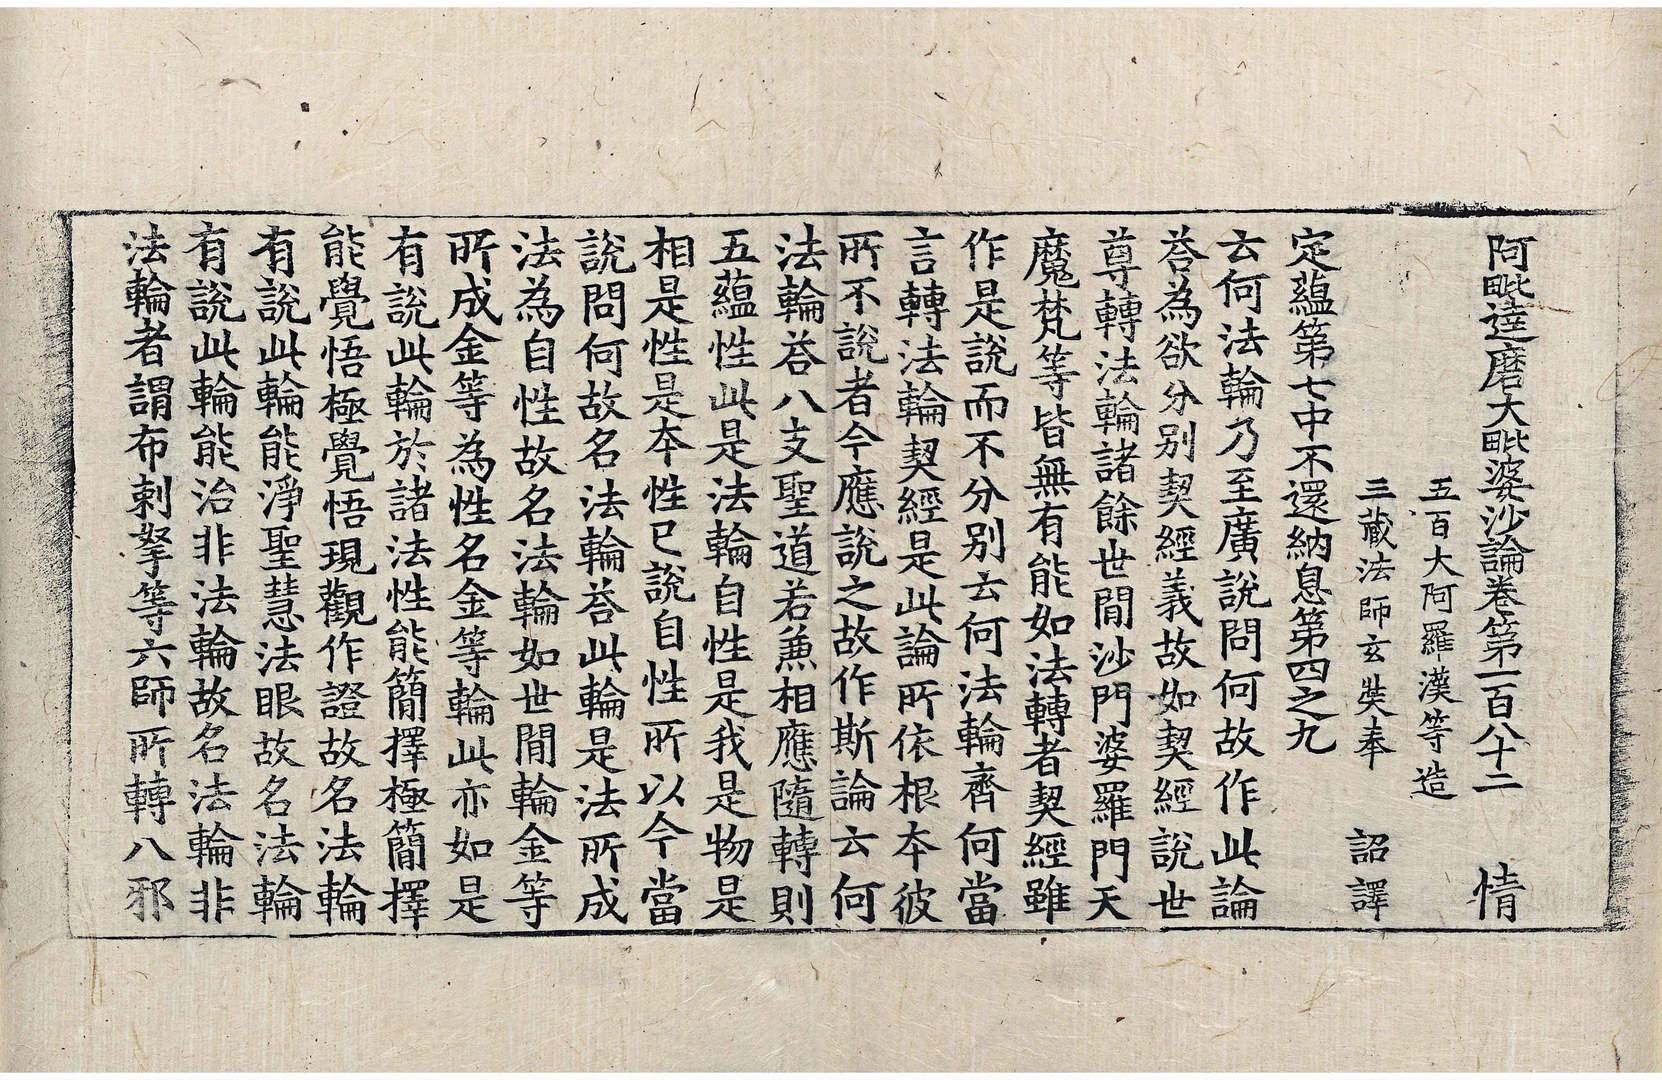 阿毗達磨大毗婆沙論卷第一百八十二 情
五百大阿羅漢等造
三藏法師玄奘奉 詔譯
定蘊第七中不還納息第四之九
云何法輪乃至廣說問何故作此論
荅為欲分別契經義故如契經說世
尊轉法輪諸餘世間沙門婆羅門天
魔梵等皆無有能如法轉者契經雖
作是說而不分別云何法輪齊何當
言轉法輪契經是此論所依根本彼
所不說者今應說之故作斯論云何
法輪荅八支聖道若兼相應隨轉則
五蘊性此是法輪自性是我是物是
相是性是本性已說自性所以今當
說問何故名法輪荅此輪是法所成
法為自性故名法輪如世間輪金等
所成金等為性名金等輪此亦如是
有說此輪於諸法性能簡擇極簡擇
能覺悟極覺悟現觀作證故名法輪
有說此輪能淨聖慧法眼故名法輪
有說此輪能治非法輪故名法輪非
法輪者謂布剌拏等六師所轉八邪